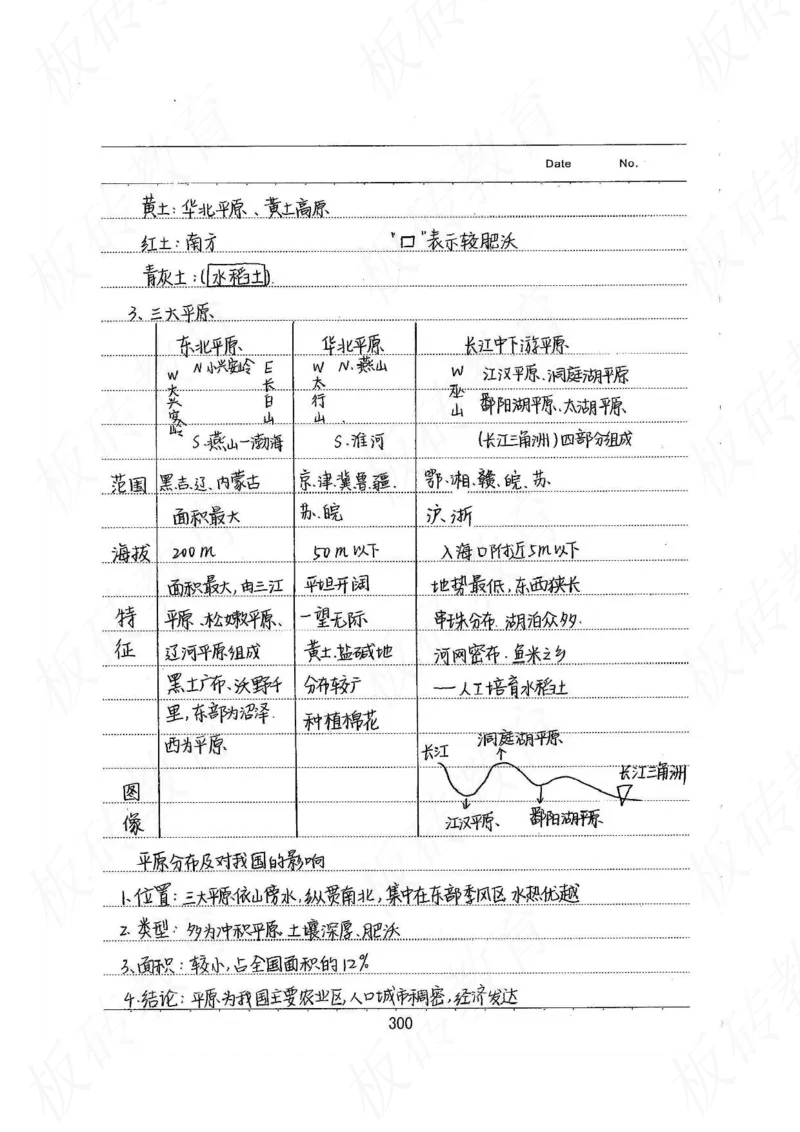 Date No.
黄土：华北平原、黄土高原
红土：南方 "口"表示较肥沃
青灰土：(水稻土)
3、三大平原
东北平原 华北平原 长江中下游平原
W大兴安岭 N小兴安岭 E长白山 W太行山 N.燕山 W巫山 江汉平原、洞庭湖平原
鄱阳湖平原、太湖平原
S.燕山—渤海 S.淮河 (长江三角洲)四部分组成
范围 黑.吉.辽、内蒙古 京.津.冀.鲁.疆. 鄂.湘.赣.皖.苏
面积最大 苏.皖 沪.浙
海拔 200m 50m以下 入海口附近5m以下
面积最大,由三江 平坦开阔 地势最低,东西狭长
特 平原、松嫩平原、 一望无际 串珠分布.湖泊众多.
征 辽河平原组成 黄土.盐碱地 河网密布.鱼米之乡
黑土广布、沃野千 分布较广 —人工培育水稻土
里,东部为沼泽. 种植棉花
西为平原 长江 洞庭湖平原 长江三角洲
图
像 江汉平原、 鄱阳湖平原
平原分布及对我国的影响
1.位置：三大平原依山傍水,纵贯南北,集中在东部季风区 水热优越
2.类型：多为冲积平原 土壤深厚、肥沃
3.面积：较小,占全国面积的12%
4.结论：平原为我国主要农业区,人口城市稠密,经济发达
300
板砖教育